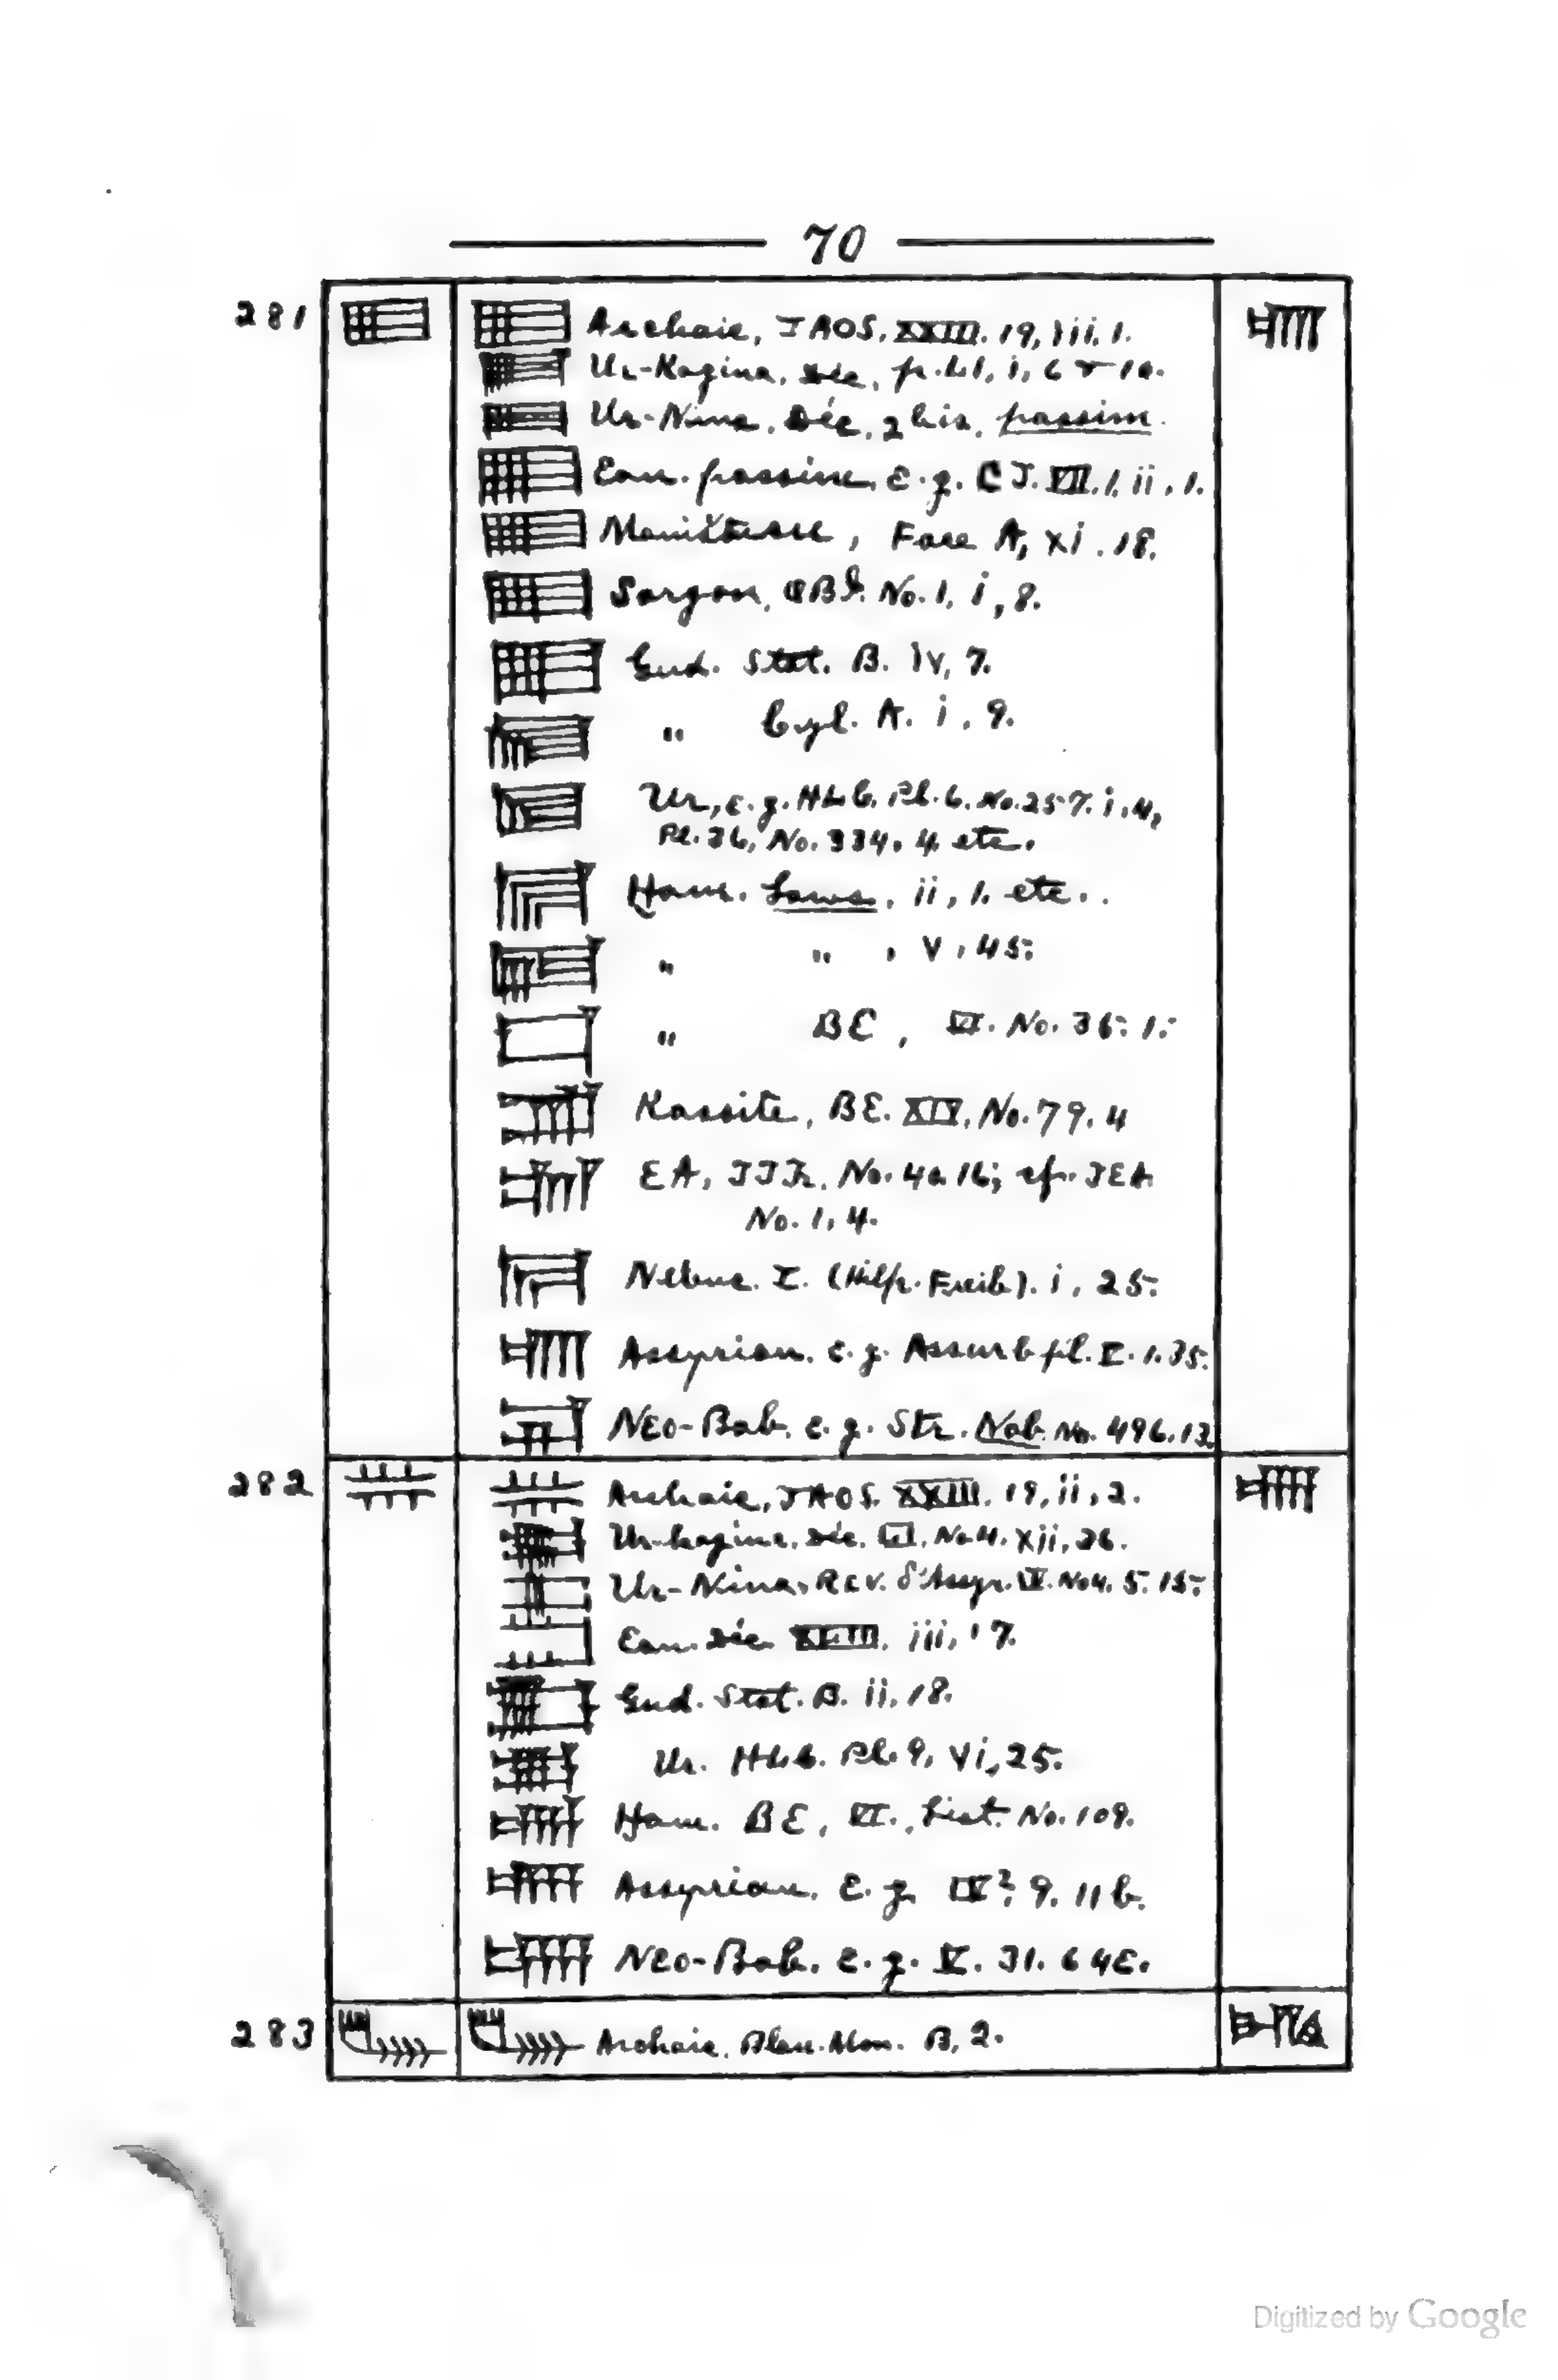 70
281 Archaic, JAOS. XXIII. 19, iii, 1.
Ur-Kagina, Déc, pl. i, 6
Ur-Nina, Déc, 2 bis, passim.
Ean. passim, e.g. CT. VII. 1. ii, 1.
Maništusu, Face A, xi. 18.
Sargon, OBI. No. 1, i, 8.
Gud. Stat. B. iv, 7.
" Cyl. A. i, 9.
Ur, e.g. HLC. Pl. 6. No. 257. i, 4,
Pl. 36, No. 334. 4 etc.
Ham. Laws, ii, 1. etc..
" " , v, 45.
" BE, VI. No. 36. 1.
Kassite, BE. XIV, No. 79. 4
EA, No. 16; cf.
No. 1, 4.
Nebuc. I. (Hilp. Freib). i, 25.
Assyrian. e.g. Assurbpl. V. 1. 35.
Neo-Bab. e.g. Str. Nab. No. 496. 13.
282 Archaic, JAOS. XXIII. 19, ii, 2.
Ur-Kagina, Déc. No. 4. xii, 26.
Ur-Nina, Rev. d'Assyr. No 4. 5. 15.
Ean. Déc. iii, 17.
Gud. Stat. B. ii, 18.
Ur. HLC. Pl. 9, vi, 25.
Ham. BE, VI., List. No. 109.
Assyrian. e.g. IV² 9. 11 b.
Neo-Bab. e.g. V. 31. 64
283 Archaic, Blau. Mon. B, 2.
Digitized by Google